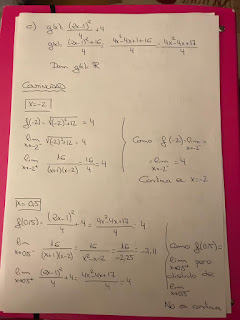 c) g(x) = (2x-1)²/4 + 4
g(x) = (2x-1)²+16/4 = 4x²-4x+1+16/4 = 4x²-4x+17/4
Dom g(x) ℝ
Continuidad
x=-2
f(-2) = √(-2)²+12 = 4
lim x→-2⁻ √(-2)²+12 = 4
lim x→-2⁺ 16/(x+1)(x-2) = 16/4 = 4
Como f(-2) = lim x→-2⁻ =
= lim x→-2⁺ = 4
Continua a x=-2
x=0,5
f(0,5) = (2x-1)²/4 + 4 = 4x²-4x+17/4 = 4
lim x→0,5⁻ 16/(x+1)(x-2) = 16/x²-x-2 = 16/-2,25 = -7,11
lim x→0,5⁺ (2x-1)²/4 + 4 = 4x²-4x+17/4 = 4
Como f(0,5) =
lim x→0,5⁺ pero
distinto de
lim x→0,5⁻
No es continua